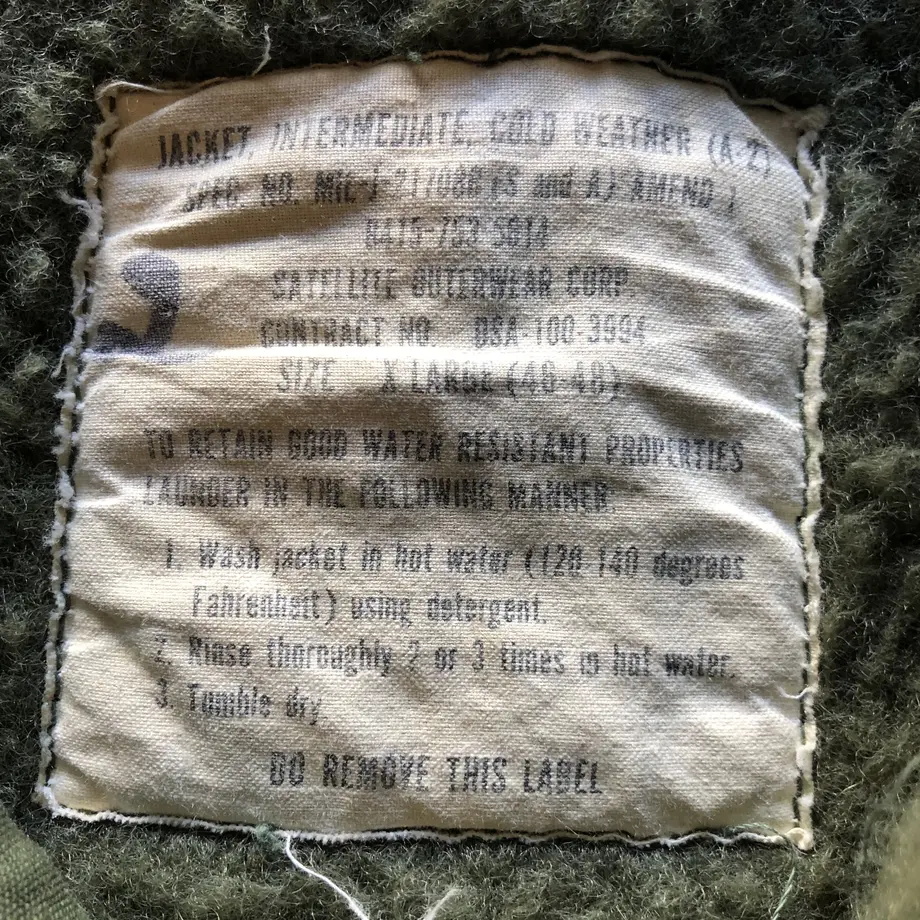 JACKET, INTERMEDIATE, COLD WEATHER (A-2)
SPEC. NO. MIL-J-21708B (S and A) AMEND 1
8415-753-5614
SATELLITE OUTERWEAR CORP.
CONTRACT NO. DSA-100-3994
SIZE X LARGE (46-48)
TO RETAIN GOOD WATER RESISTANT PROPERTIES
LAUNDER IN THE FOLLOWING MANNER
1. Wash jacket in hot water (120-140 degrees
Fahrenheit) using detergent.
2. Rinse thoroughly 2 or 3 times in hot water.
3. Tumble dry
DO REMOVE THIS LABEL